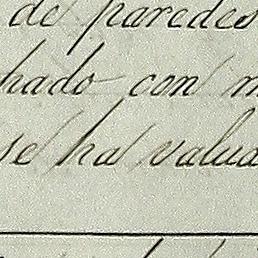 de paredes
hado con m
se ha valua